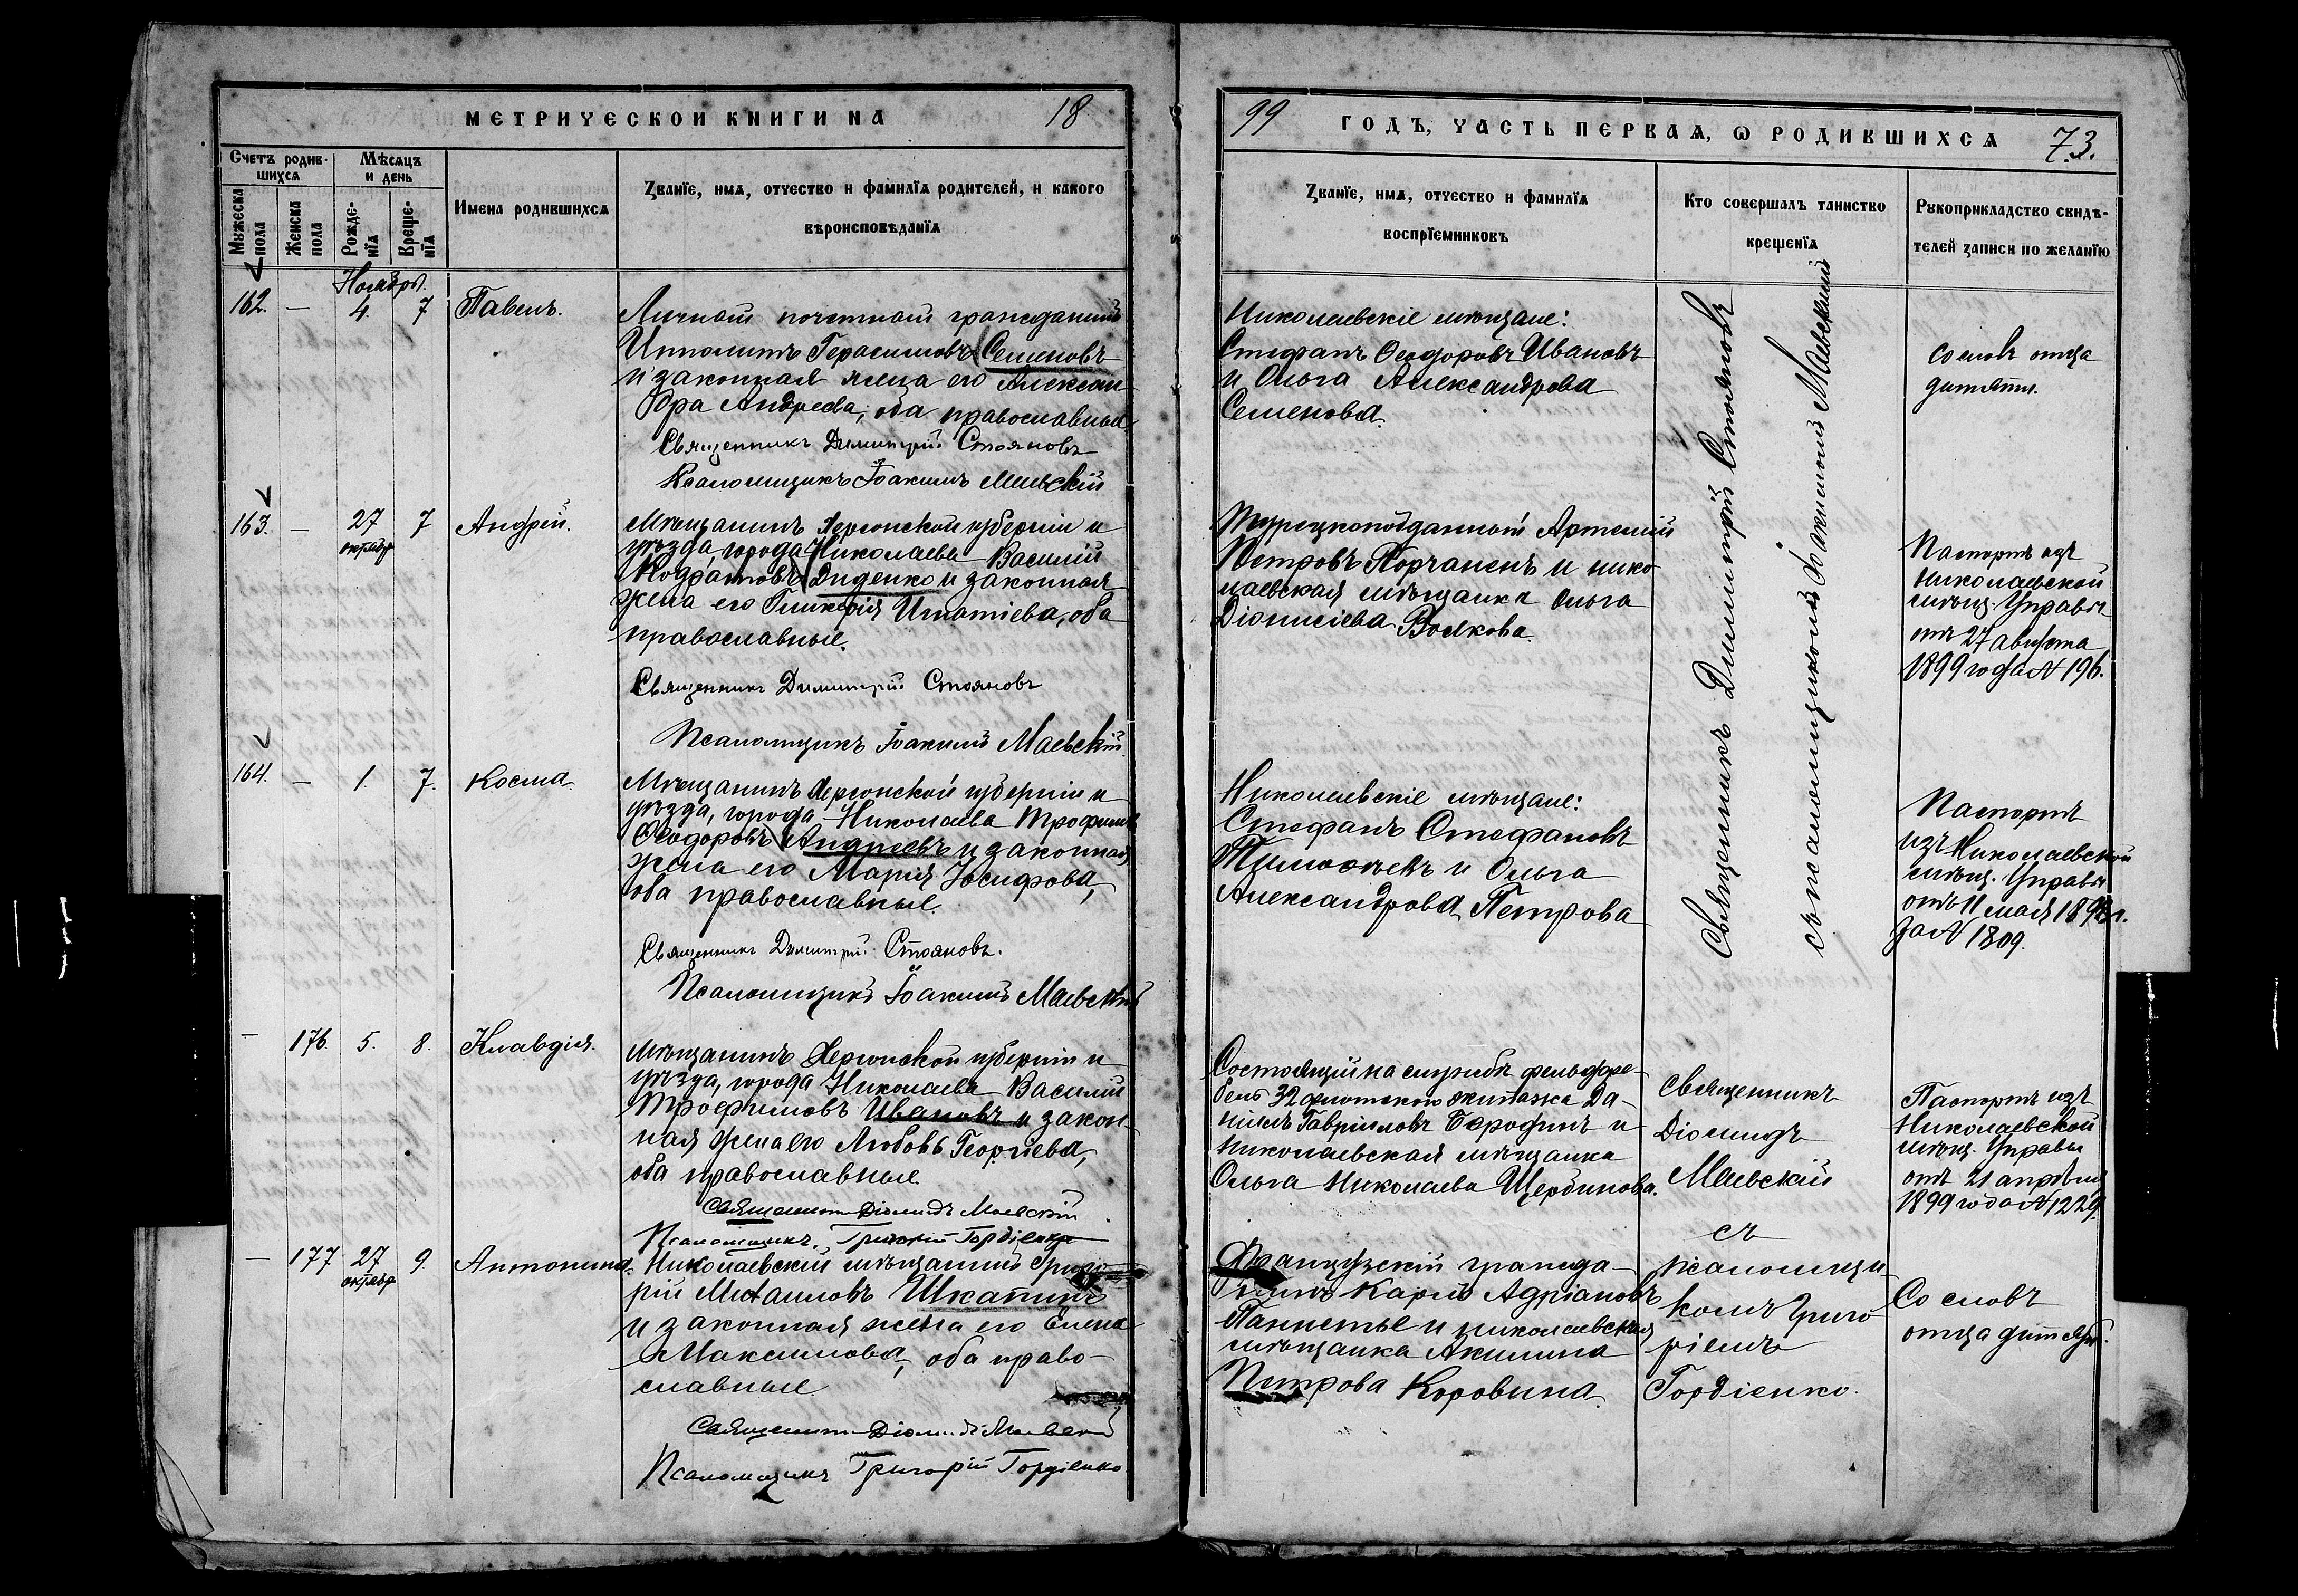 МЕТРИЧЕСКОЙ КНИГИ НА 18
99 ГОДЪ, ЧАСТЬ ПЕРВАЯ, Ѡ РОДИВШИХСЯ 73.
Счетъ родив-
шихся
Мужеска
пола
Женска
пола
Мѣсяцъ
и день
Рожде-
нїя
Креще-
нїя
Имена родившихся
Званїе, имя, отчество и фамилїя родителей, и какого
вѣроисповѣданїя
Званїе, имя, отчество и фамилїя
воспрїемниковъ
Кто совершалъ таинство
крещенїя
Рукоприкладство свидѣ-
телей записи по желанїю
Ноябрь.
162. — 4. 7 Павелъ.
Личный почетный гражданинъ
Ипполитъ Герасимовъ Семеновъ
и законная жена его Алексан
дра Андреева, оба православные
Священникъ Димитрій Стояновъ
Псаломщикъ Іоакимъ Маевскій
Николаевскіе мѣщане:
Стефанъ Ѳеодоровъ Ивановъ
и Ольга Александрова
Семенова.
Священникъ Димитрій Стояновъ
съ псаломщикомъ Іоакимомъ Маевскимъ
Со словъ отца
дитяти.
163. — 27 октября 7 Андрей.
Мѣщанинъ Херсонской губерніи и
уѣзда, города Николаева Василій
Кодратовъ Диденко и законная
жена его Гликерія Игнатіева, оба
православные.
Священникъ Димитрій Стояновъ
Псаломщикъ Іоакимъ Маевскій
Турецкоподданный Артемій
Петровъ Порчаненъ и нико
лаевская мѣщанка Ольга
Діонисіева Волкова.
Паспортъ изъ
Николаевской
мѣщ. Управы
отъ 27 августа
1899 года № 196.
164. — 1. 7. Косма.
Мѣщанинъ Херсонской губерніи и
уѣзда, города Николаева Трофимъ
Ѳеодоровъ Андреевъ и законная
жена его Марія Іосифова,
оба православные.
Священникъ Димитрій Стояновъ.
Псаломщикъ Іоакимъ Маевскій
Николаевскіе мѣщане:
Стефанъ Стефановъ
и Ольга
Александрова Петрова
Паспортъ
изъ Николаевской
мѣщ. Управы
отъ 11 мая
за № 1809.
— 176. 5. 8. Клавдія.
Мѣщанинъ Херсонской губерніи и
уѣзда, города Николаева Василій
Трофимовъ Ивановъ и закон
ная жена его Любовь Георгіева,
оба православные.
Священникъ Діомидъ Маевскій
Псаломщикъ Григорій Гордіенко
Состоящій на службѣ фельдфе-
бель 32 флотскаго экипажа Да-
ніилъ Гавріиловъ Берофинъ и
николаевская мѣщанка
Ольга Николаева Щербинова.
Священникъ
Діомидъ
Маевскій
съ
псаломщи
комъ Григо
ріемъ
Гордіенко.
Паспортъ изъ
Николаевской
мѣщ. Управы
отъ 21 апрѣля
1899 года № 1229.
— 177 27 октября 9. Антонина.
Николаевскій мѣщанинъ Григо
рій Михаиловъ Шкапинъ
и законная жена его Елена
Максимова, оба право-
славные
Священникъ Діомидъ Маевскій
Псаломщикъ Григорій Гордіенко.
Французскій гражда-
нинъ Карлъ Адріановъ
и николаевская
мѣщанка Акилина
Петрова Коровина.
Со словъ
отца дитяти.